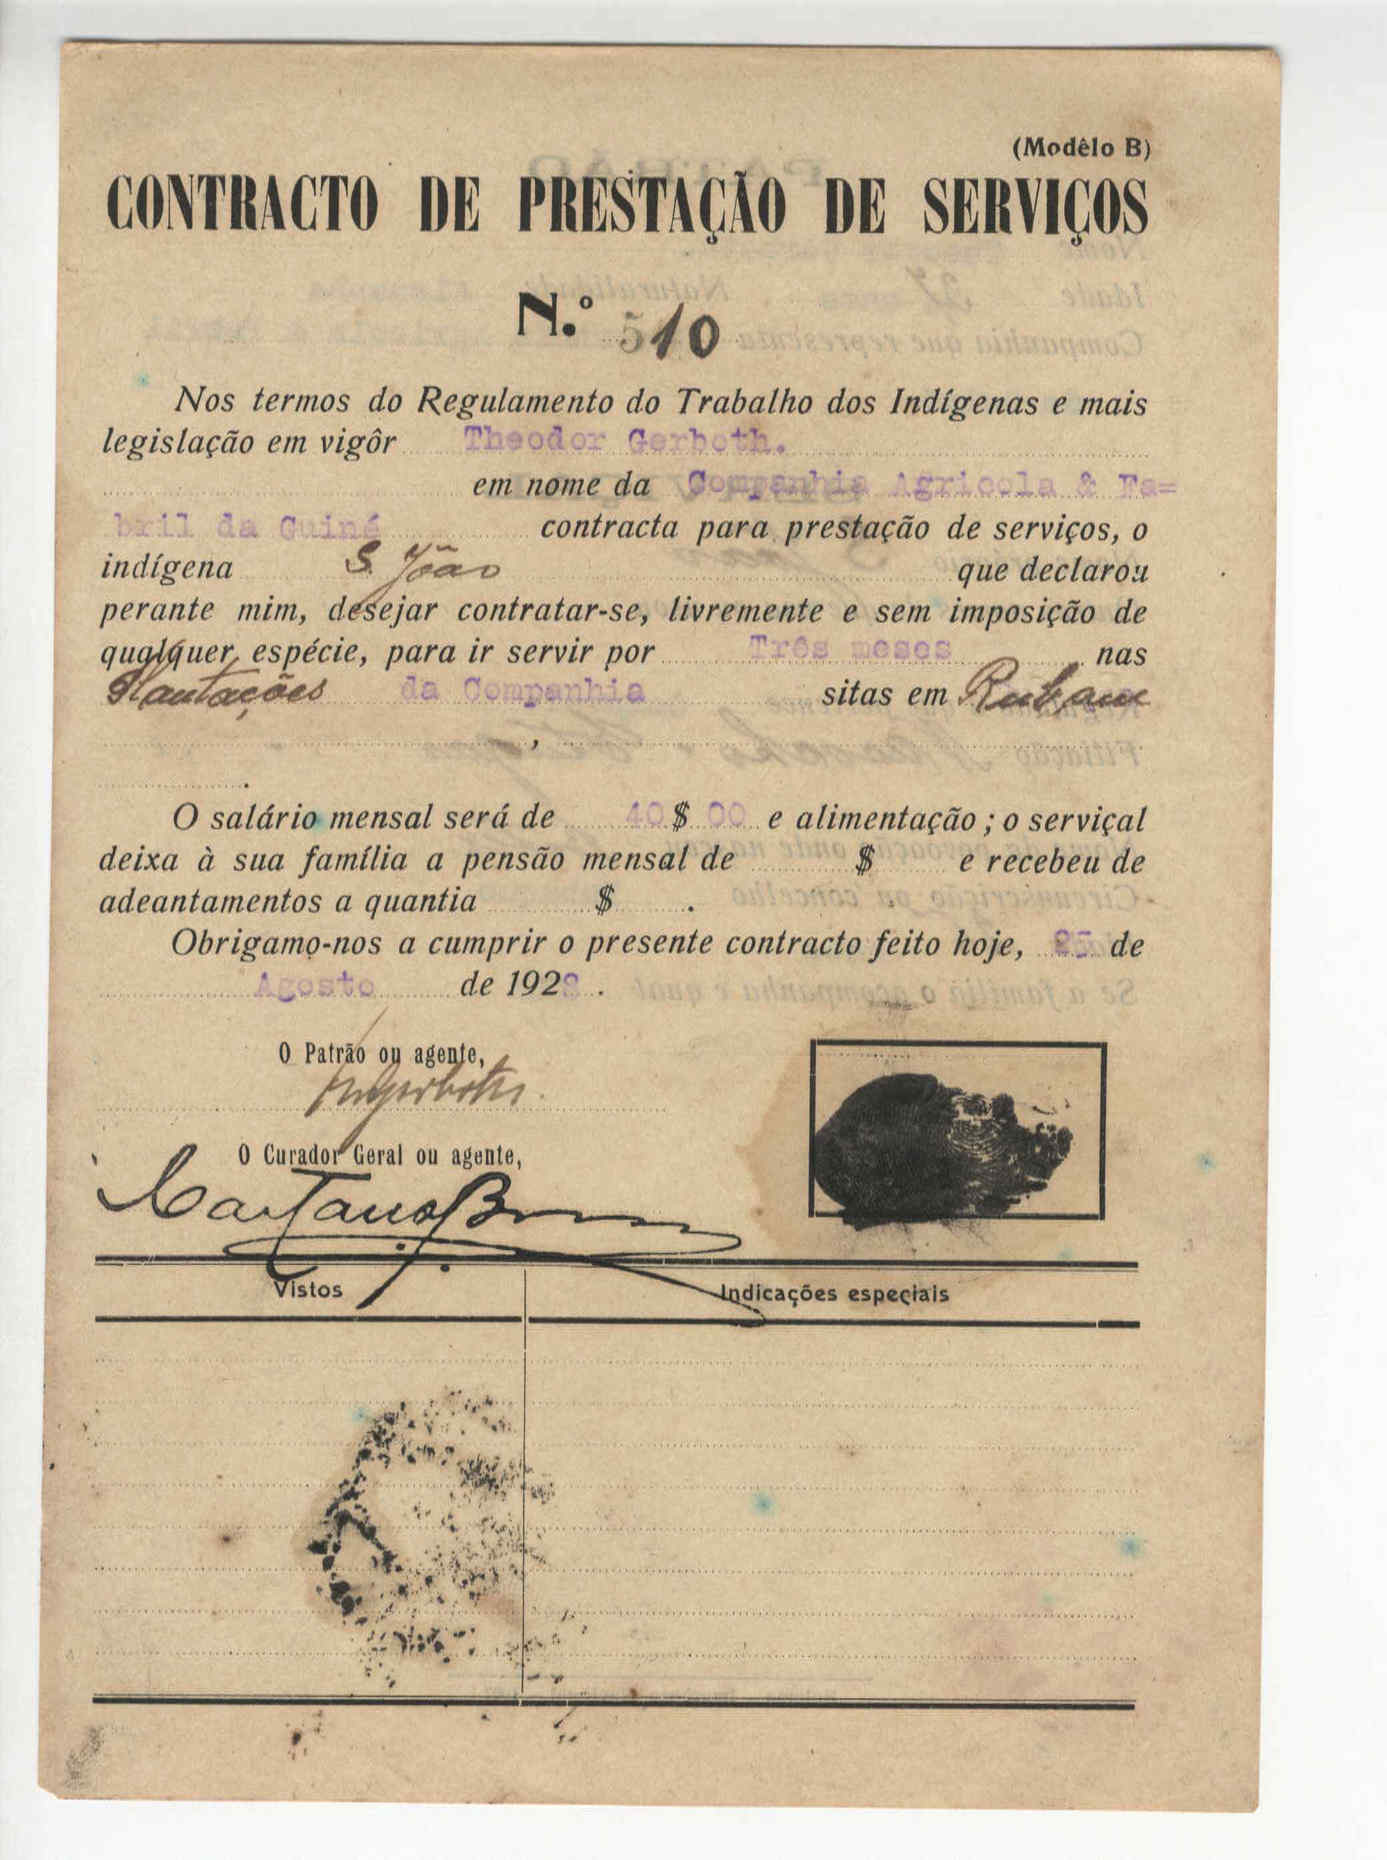 (Modêlo B)
CONTRACTO DE PRESTAÇÃO DE SERVIÇOS
N.º 510
Nos termos do Regulamento do Trabalho dos Indígenas e mais
legislação em vigôr Theodor Gerboth.
em nome da Companhia Agricola & Fa=
bril da Guiné contracta para prestação de serviços, o
indígena S. João que declarou
perante mim, desejar contratar-se, livremente e sem imposição de
qualquer espécie, para ir servir por Três meses nas
Plantações da Companhia sitas em Rubane
,
.
O salário mensal será de 40 $ 00 e alimentação ; o serviçal
deixa à sua família a pensão mensal de $ e recebeu de
adeantamentos a quantia $ .
Obrigamo-nos a cumprir o presente contracto feito hoje, de
Agosto de 1928 .
O Patrão ou agente,
O Curador Geral ou agente,
Vistos Indicações especiais